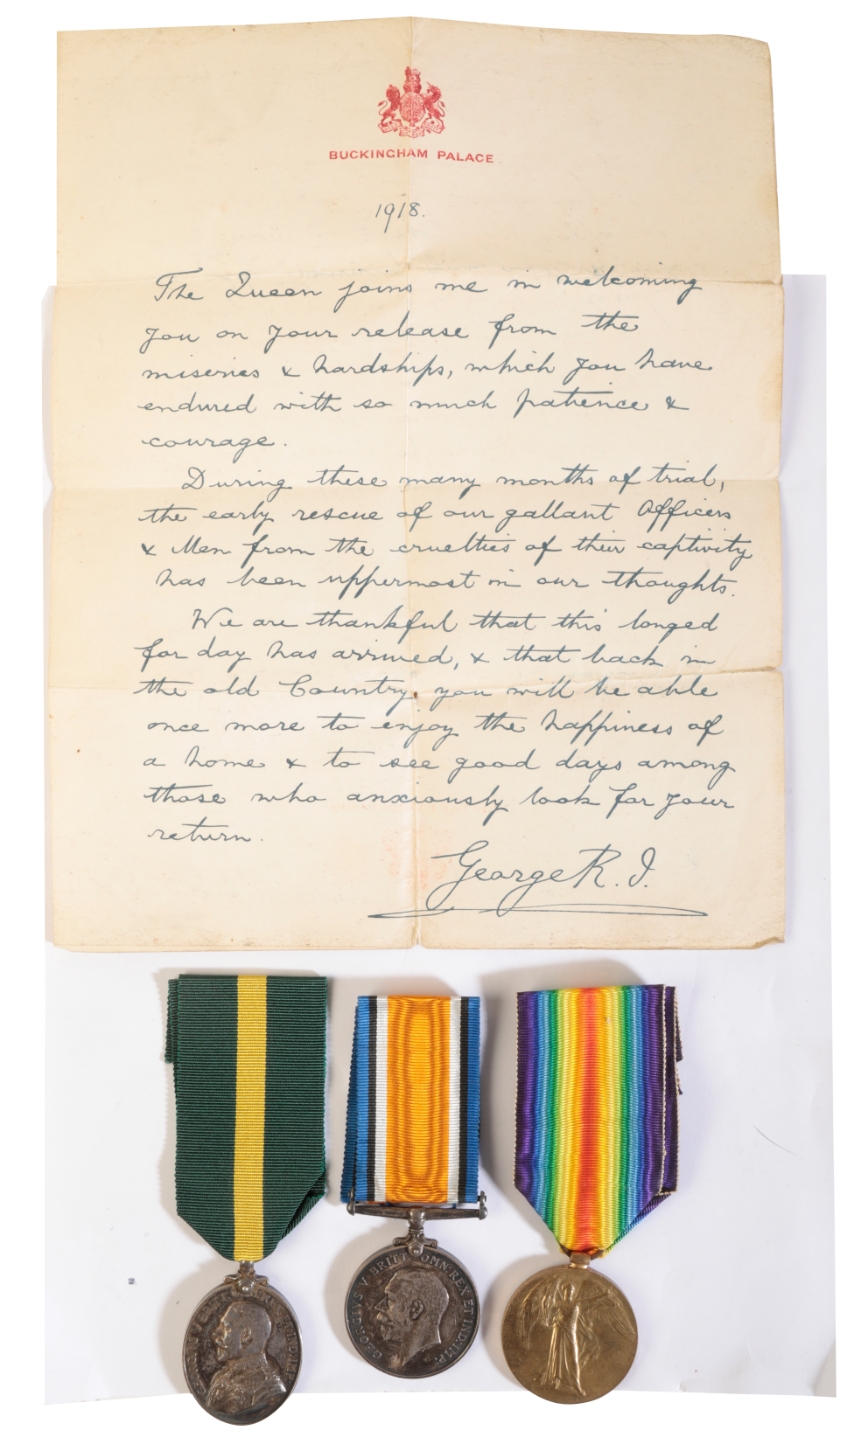 BUCKINGHAM PALACE
1918.
The Queen joins me in welcoming
you on your release from the
miseries & hardships, which you have
endured with so much patience &
courage.
During these many months of trial,
the early rescue of our gallant Officers
& Men from the cruelties of their captivity
has been uppermost in our thoughts.
We are thankful that this longed
for day has arrived, & that back in
the old Country you will be able
once more to enjoy the happiness of
a home & to see good days among
those who anxiously look for your
return.
George R. I.
GEORGIVS V BRITT: OMN: REX ET IND: IMP: